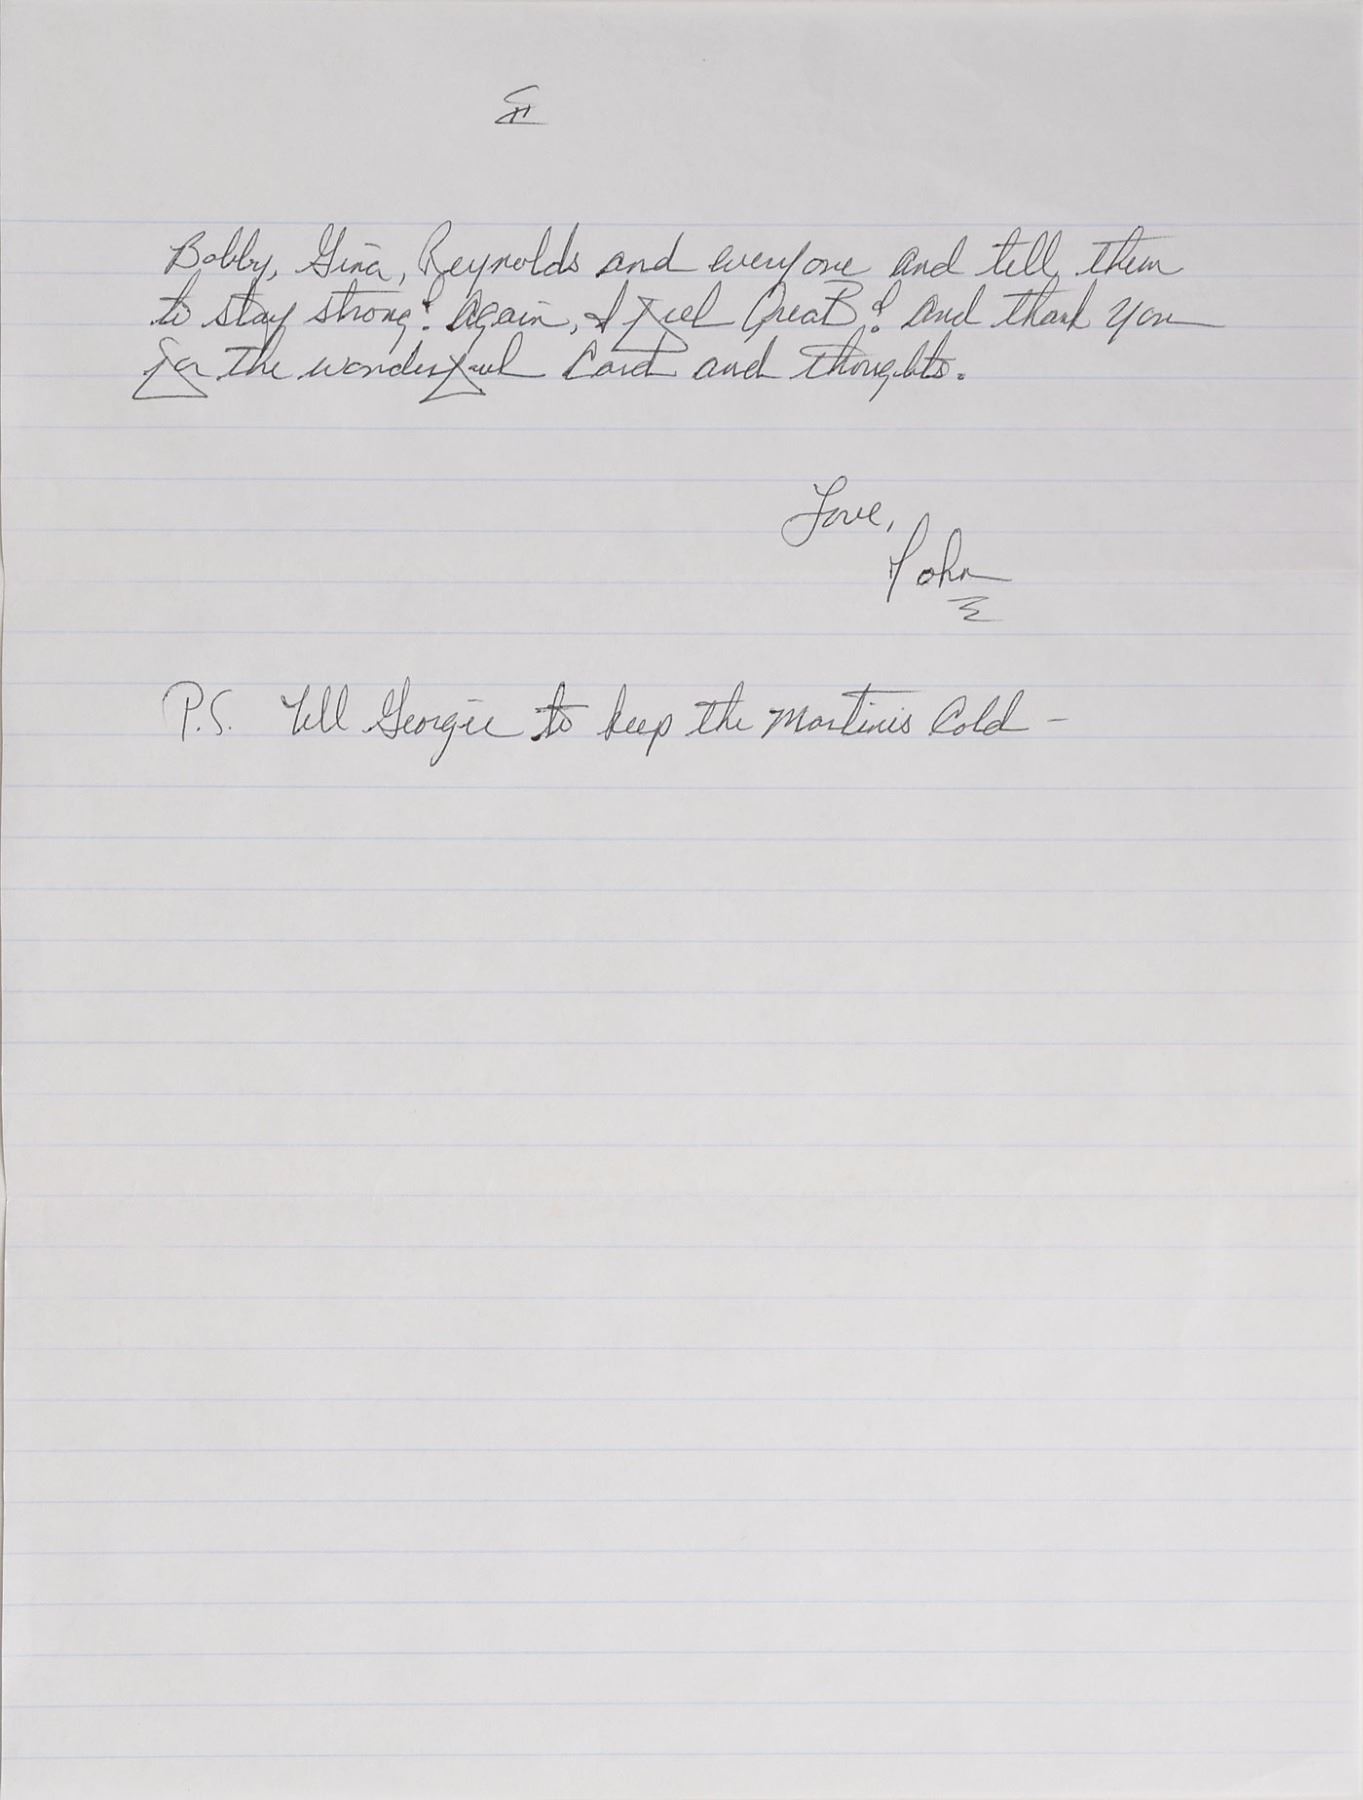 II
Bobby, Gina, Reynolds and everyone and tell them
to stay strong! Again, I feel Great! And thank you
for the wonderful Card and thoughts.
Love,
John
P.S. Tell Georgie to keep the Martinis Cold -